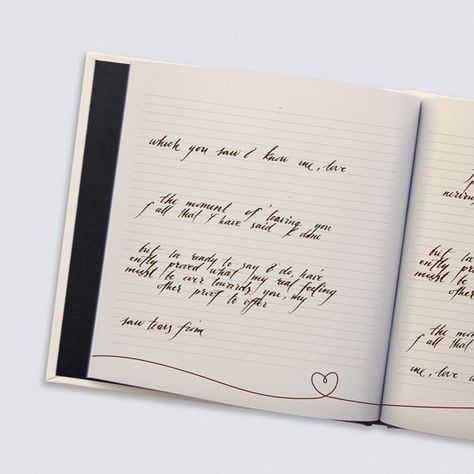 which you saw & know me, love
the moment of leaving you
f all that I have said & done
but be ready to say & do, have
ently proved what my real feeling
might be ever towards you, my
other proof to offer
saw tears from
but
ently
might
othe
the mom
f all that
me, love